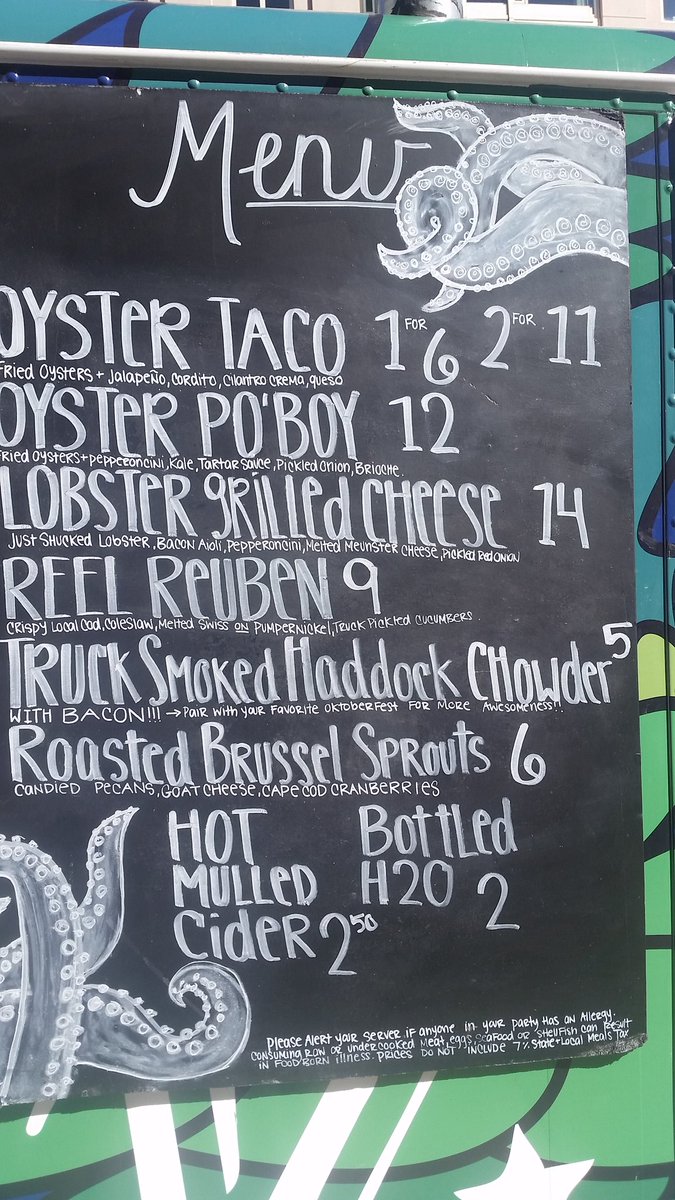 Menu
OYSTER TACO 1 FOR 6 2 FOR 11
Fried Oysters + Jalapeño, Cordito, Cilantro Crema, Queso
OYSTER PO'BOY 12
Fried Oysters + Pepperoncini, Kale, Tartar Sauce, Pickled Onion, Brioche.
LOBSTER GRILLED CHEESE 14
Just Shucked Lobster, Bacon Aioli, Pepperoncini, Melted Meunster Cheese, Pickled Red Onion
REEL REUBEN 9
Crispy Local Cod, Coleslaw, Melted Swiss on Pumpernickel, Truck Pickled Cucumbers.
TRUCK SMOKED HADDOCK CHOWDER 5
WITH BACON!!! → Pair with your favorite Oktoberfest for more awesomeness!!
ROASTED BRUSSEL SPROUTS 6
Candied Pecans, Goat Cheese, Cape Cod Cranberries
HOT MULLED CIDER 2 50
BOTTLED H2O 2
Please Alert your server if anyone in your party has an Allergy.
Consuming Raw or undercooked Meat, eggs, Seafood or Shellfish can Result
in Food Born illness. Prices do not include 7% State + Local Meals Tax